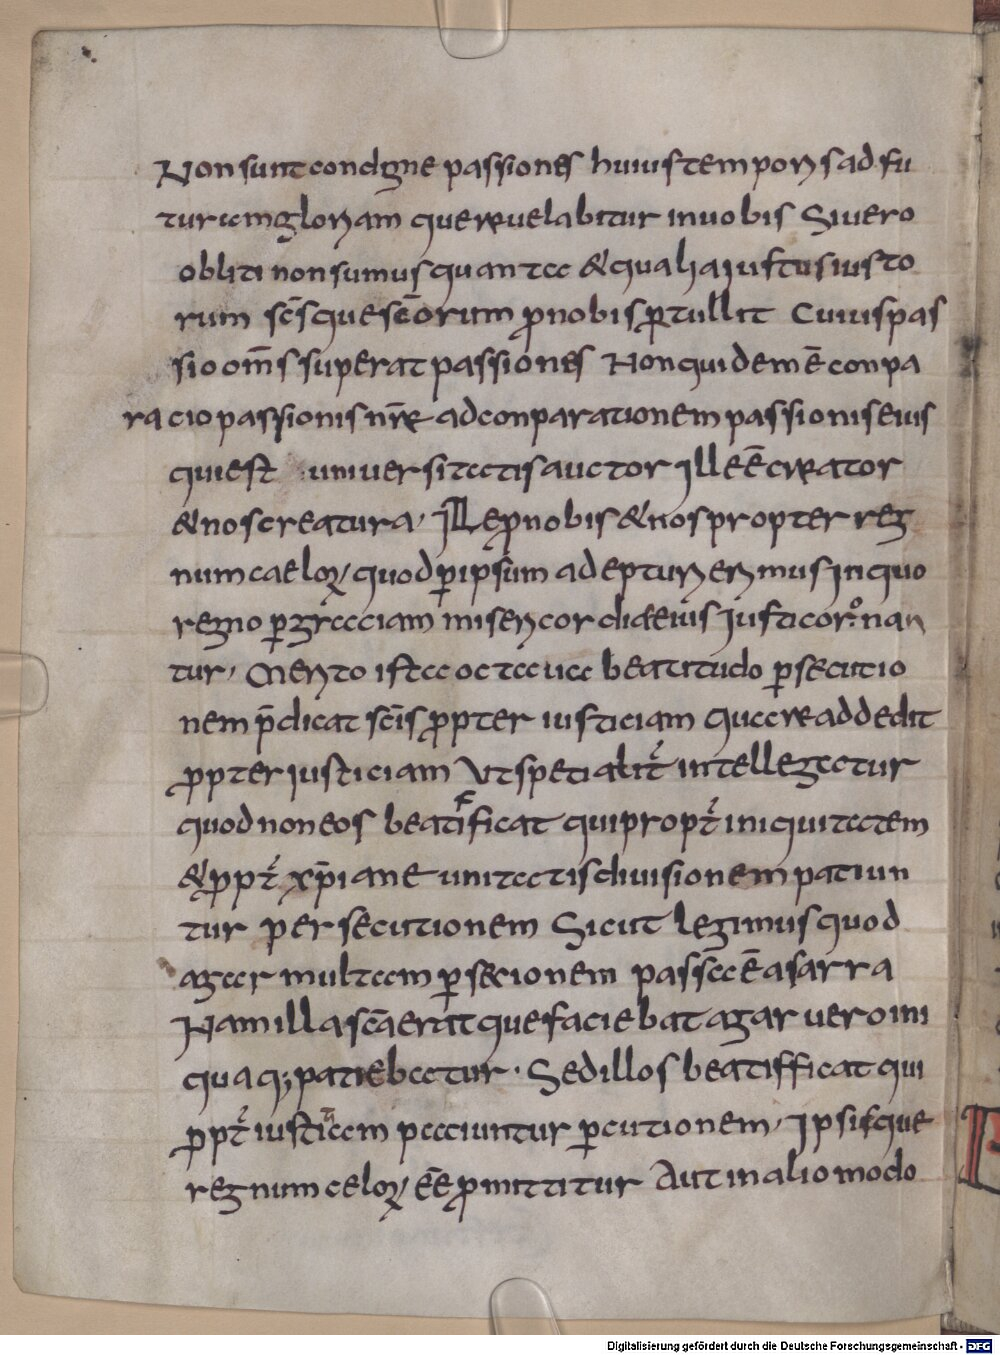 Non sunt condigne passiones huius temporis ad fu
turam gloriam que revelabitur in vobis Si vero
obliti non sumus quanta & qualia iustus iusto
rum sc̄s que sc̄orum p̱ nobis p̱tullit Cuius pas
sio om̄s superat passiones Non quidem ē conpa
racio passionis nr̄e ad conparationem passionis eius
qui est universitatis auctor Ille ē creator
& nos creatura, Ille p̱ nobis & nos propter reg
num caeloꝝ, quod p̱ ipsum adepturi erimus In quo
regno p̱ graciam misericordiae eius Iusti coronan
tur, Merito ista octava beatitudo p̱secutio
nem p̄dicat sc̄is p̱pter iusticiam Quare addedit
p̱pter iusticiam Ut spetialit̄ intellegatur
quod non eos beatificat qui propt̄ iniquitatem
& p̱pt̄ xp̄iane unitatis divisionem patiun
tur persecutionem Sicut legimus quod
agar multam p̱secionem passa ē a sarra
Nam illa sc̄a erat que faciebat agar vero ini
qua q; patiebatur . Sed illos beatifficat qui
p̱pt̄ iusticiam paciuntur p̱cutionem, Ipsisque
regnum celoꝝ, ēē p̱mittitur Aut in alio modo
Digitalisierung gefördert durch die Deutsche Forschungsgemeinschaft - DFG